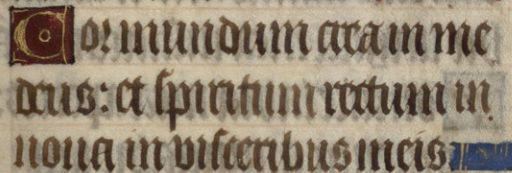 Cor mundum crea in me
deus: et spiritum rectum in
noua in visceribus meis